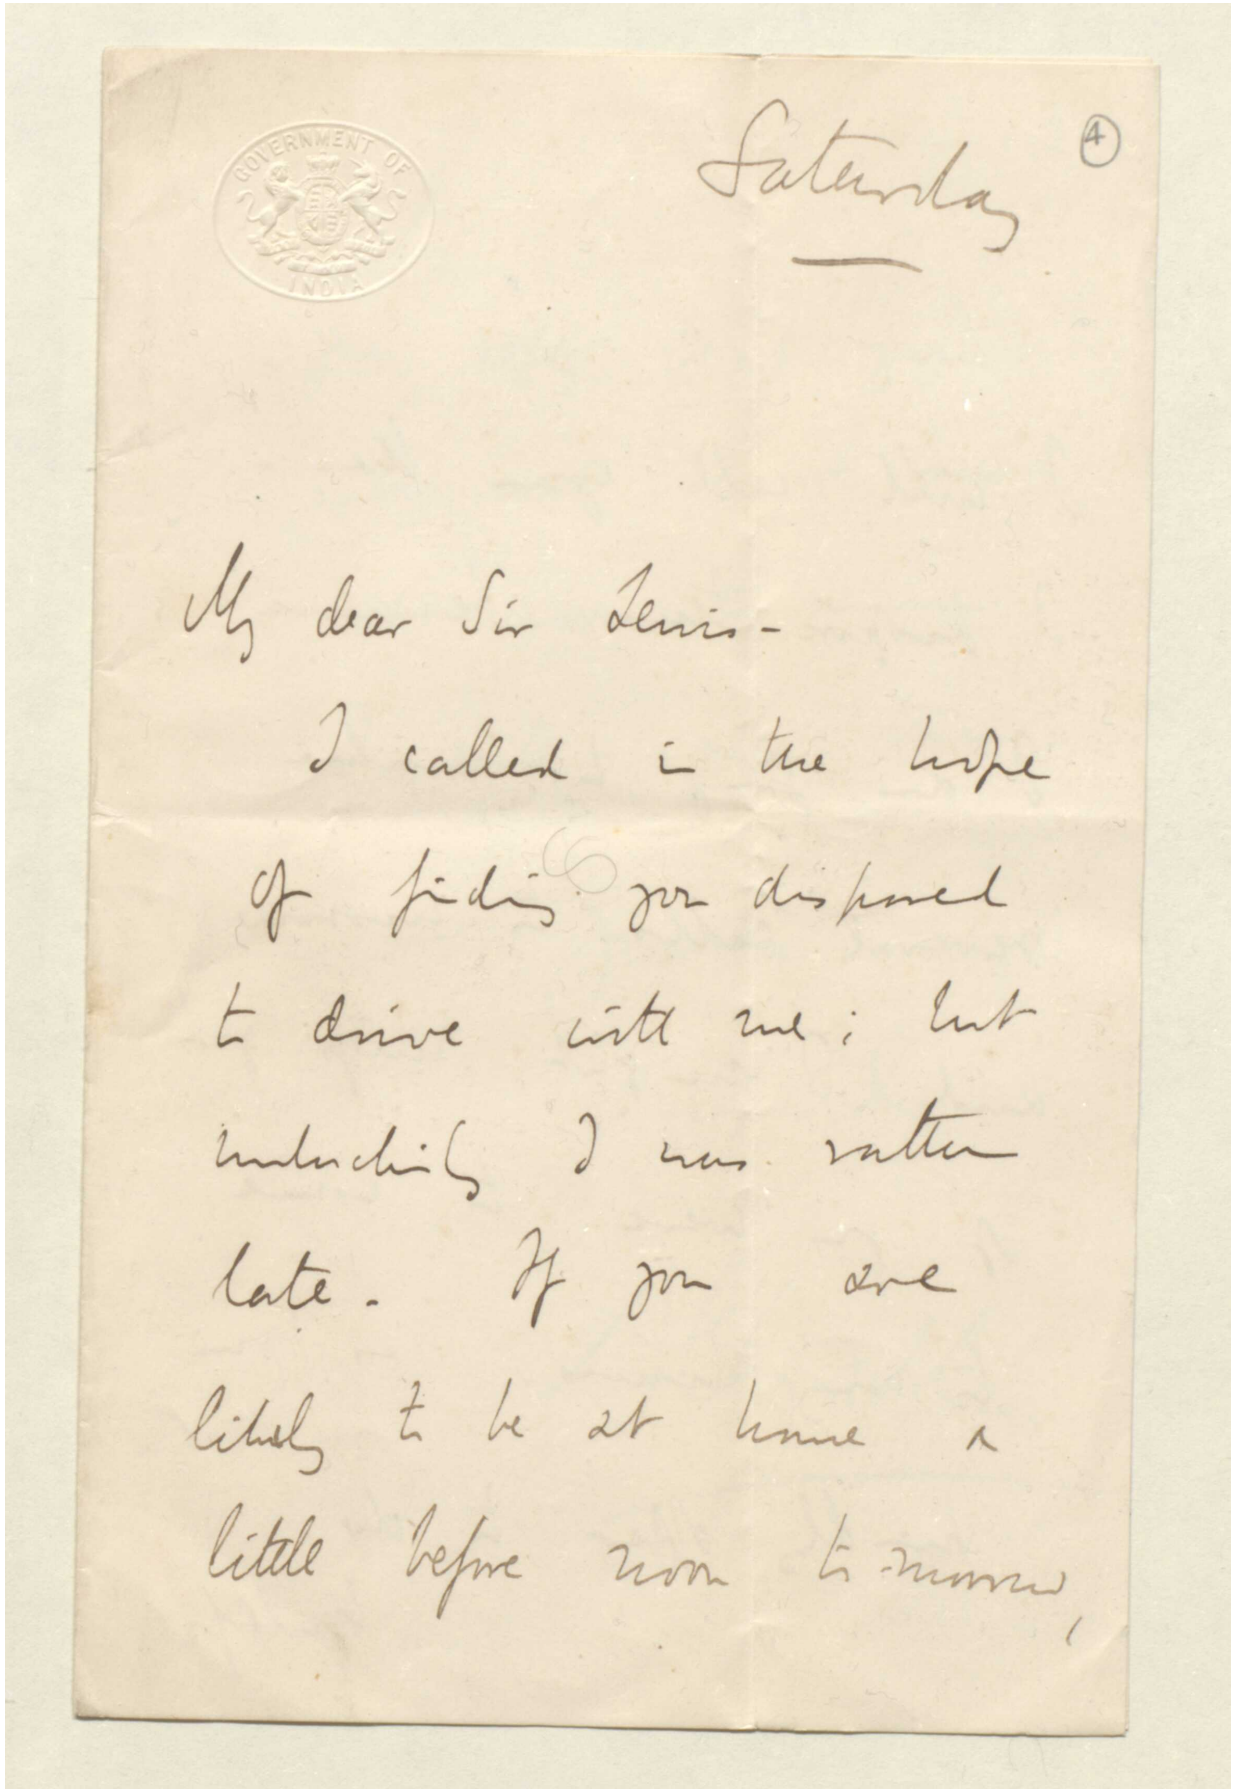 GOVERNMENT OF
INDIA
Saturday
4
My dear Sir Lewis -
I called in the hope
of finding you disposed
to drive with me; but
unluckily I was rather
late. If you are
likely to be at home a
little before noon to-morrow,